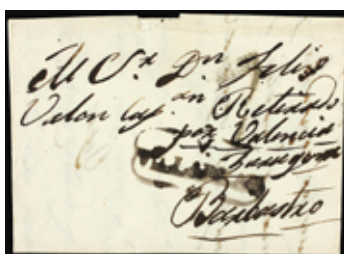 Al Sr. Dn Felis
Velon Capn Retirado
por Valencia
Zaragoza
Barbastro